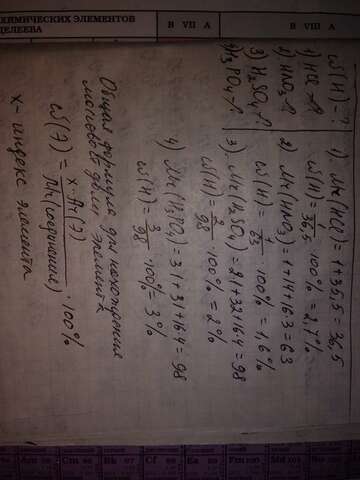 ХИМИЧЕСКИХ ЭЛЕМЕНТОВ
ДЕЛЕЕВА
B VII A
B VIII A
ω(H)-?
1) HCl
2) HNO₃
3) H₂SO₄
4) H₃PO₄
1). Mr(HCl) = 1+35,5=36,5
ω(H)= 1/36,5 · 100% = 2,7%
2) Mr(HNO₃)=1+14+16·3=63
ω(H)= 1/63 · 100% = 1,6%
3). Mr(H₂SO₄)=2·1+32+16·4=98
ω(H)= 2/98 · 100% = 2%
4) Mr(H₃PO₄)=3·1+31+16·4=98
ω(H)= 3/98 · 100% = 3%
Общая формула для нахождения
массовой доли элемента
ω(Э) = x·Ar(Э)/Mr(соединения) · 100%
x- индекс элемента
Am
Cm 96
Bk 97
Cf 98
Es 99
Fm 100
Md 101